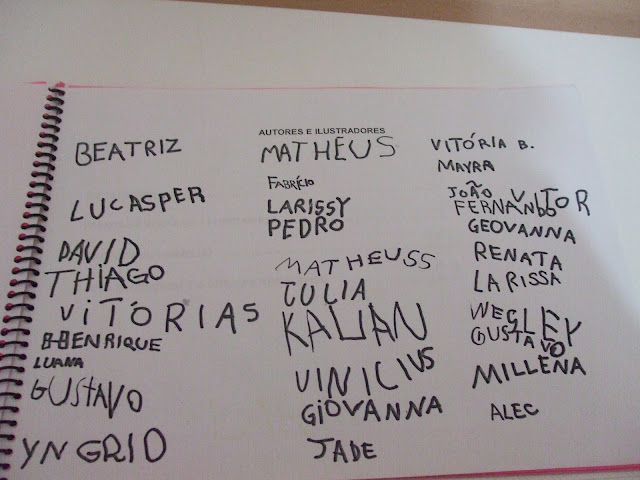 AUTORES E ILUSTRADORES
BEATRIZ
LUCASPER
DAVID
THIAGO
VITÓRIAS
HENRIQUE
LUANA
GUSTAVO
YNGRID
MATHEUS
FABRÍCIO
LARISSY
PEDRO
MATHEUSS
JULIA
KAUAN
VINICIUS
GIOVANNA
JADE
VITÓRIA B.
MAYRA
JOÃO VITOR
FERNANDO
GEOVANNA
RENATA
LARISSA
WESLEY
GUSTAVO
MILLENA
ALEC